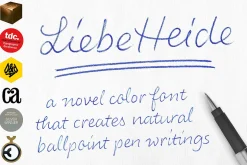 LiebeHeide
a novel color font
that creates natural
ballpoint pen writings
tdc.
ca